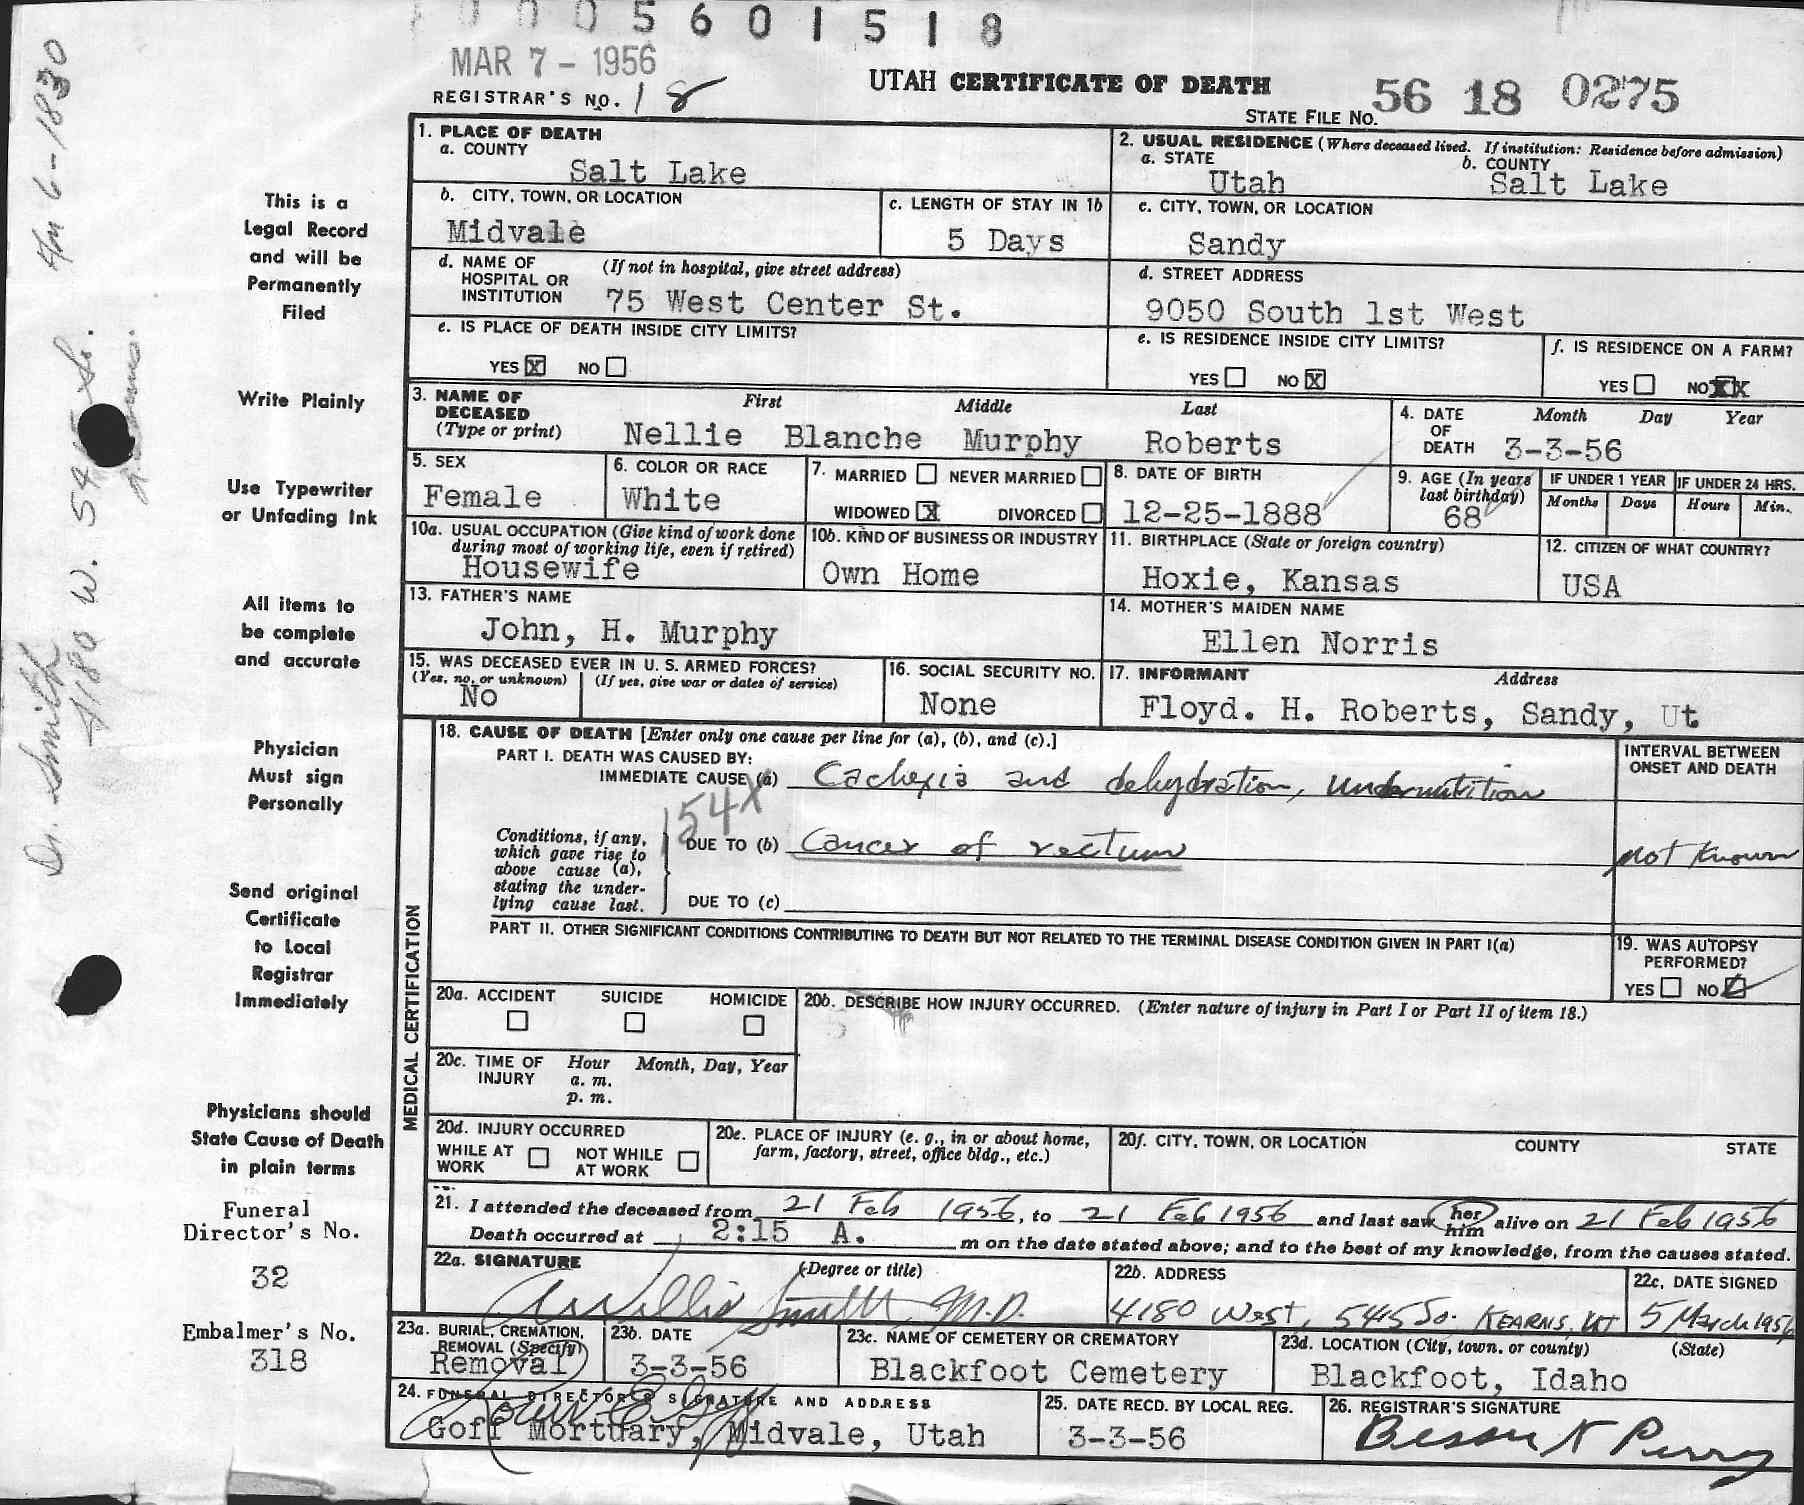 0005601518
MAR 7 - 1956
REGISTRAR'S NO. 18
UTAH CERTIFICATE OF DEATH
STATE FILE NO. 56 18 0275
4m 6-1830
Dr. Smith
4180 W. 5415 So.
Kearns.
This is a
Legal Record
and will be
Permanently
Filed
Write Plainly
Use Typewriter
or Unfading Ink
All items to
be complete
and accurate
Physician
Must sign
Personally
Send original
Certificate
to Local
Registrar
Immediately
Physicians should
State Cause of Death
in plain terms
Funeral
Director's No.
32
Embalmer's No.
318
1. PLACE OF DEATH
a. COUNTY
Salt Lake
2. USUAL RESIDENCE (Where deceased lived. If institution: Residence before admission)
a. STATE b. COUNTY
Utah Salt Lake
b. CITY, TOWN, OR LOCATION
Midvale
c. LENGTH OF STAY IN 1b
5 Days
c. CITY, TOWN, OR LOCATION
Sandy
d. NAME OF HOSPITAL OR INSTITUTION (If not in hospital, give street address)
75 West Center St.
d. STREET ADDRESS
9050 South 1st West
e. IS PLACE OF DEATH INSIDE CITY LIMITS?
YES X NO
e. IS RESIDENCE INSIDE CITY LIMITS?
YES NO X
f. IS RESIDENCE ON A FARM?
YES NO XX
3. NAME OF DECEASED (Type or print) First Middle Last
Nellie Blanche Murphy Roberts
4. DATE OF DEATH Month Day Year
3-3-56
5. SEX
Female
6. COLOR OR RACE
White
7. MARRIED NEVER MARRIED
WIDOWED X DIVORCED
8. DATE OF BIRTH
12-25-1888
9. AGE (In years last birthday)
68
IF UNDER 1 YEAR IF UNDER 24 HRS.
Months Days Hours Min.
10a. USUAL OCCUPATION (Give kind of work done during most of working life, even if retired)
Housewife
10b. KIND OF BUSINESS OR INDUSTRY
Own Home
11. BIRTHPLACE (State or foreign country)
Hoxie, Kansas
12. CITIZEN OF WHAT COUNTRY?
USA
13. FATHER'S NAME
John, H. Murphy
14. MOTHER'S MAIDEN NAME
Ellen Norris
15. WAS DECEASED EVER IN U. S. ARMED FORCES?
(Yes, no, or unknown) (If yes, give war or dates of service)
No
16. SOCIAL SECURITY NO.
None
17. INFORMANT Address
Floyd. H. Roberts, Sandy, Ut
MEDICAL CERTIFICATION
18. CAUSE OF DEATH [Enter only one cause per line for (a), (b), and (c).]
PART I. DEATH WAS CAUSED BY:
IMMEDIATE CAUSE (a) Cachexia and dehydration, Undernutrition
INTERVAL BETWEEN ONSET AND DEATH
154X
Conditions, if any, which gave rise to above cause (a), stating the underlying cause last.
DUE TO (b) Cancer of rectum
not known
DUE TO (c)
PART II. OTHER SIGNIFICANT CONDITIONS CONTRIBUTING TO DEATH BUT NOT RELATED TO THE TERMINAL DISEASE CONDITION GIVEN IN PART I(a)
19. WAS AUTOPSY PERFORMED?
YES NO
20a. ACCIDENT SUICIDE HOMICIDE
20b. DESCRIBE HOW INJURY OCCURRED. (Enter nature of injury in Part I or Part II of item 18.)
20c. TIME OF INJURY Hour Month, Day, Year
a. m.
p. m.
20d. INJURY OCCURRED
WHILE AT WORK NOT WHILE AT WORK
20e. PLACE OF INJURY (e. g., in or about home, farm, factory, street, office bldg., etc.)
20f. CITY, TOWN, OR LOCATION COUNTY STATE
21. I attended the deceased from 21 Feb 1956, to 21 Feb 1956 and last saw her him alive on 21 Feb 1956
Death occurred at 2:15 A. m on the date stated above; and to the best of my knowledge, from the causes stated.
22a. SIGNATURE (Degree or title)
Willis Smith, M.D.
22b. ADDRESS
4180 West, 5415 So. KEARNS, UT
22c. DATE SIGNED
5 March 1956
23a. BURIAL, CREMATION, REMOVAL (Specify)
Removal
23b. DATE
3-3-56
23c. NAME OF CEMETERY OR CREMATORY
Blackfoot Cemetery
23d. LOCATION (City, town, or county) (State)
Blackfoot, Idaho
24. FUNERAL DIRECTOR'S SIGNATURE AND ADDRESS
Goff Mortuary, Midvale, Utah
25. DATE RECD. BY LOCAL REG.
3-3-56
26. REGISTRAR'S SIGNATURE
Bessie N Perry